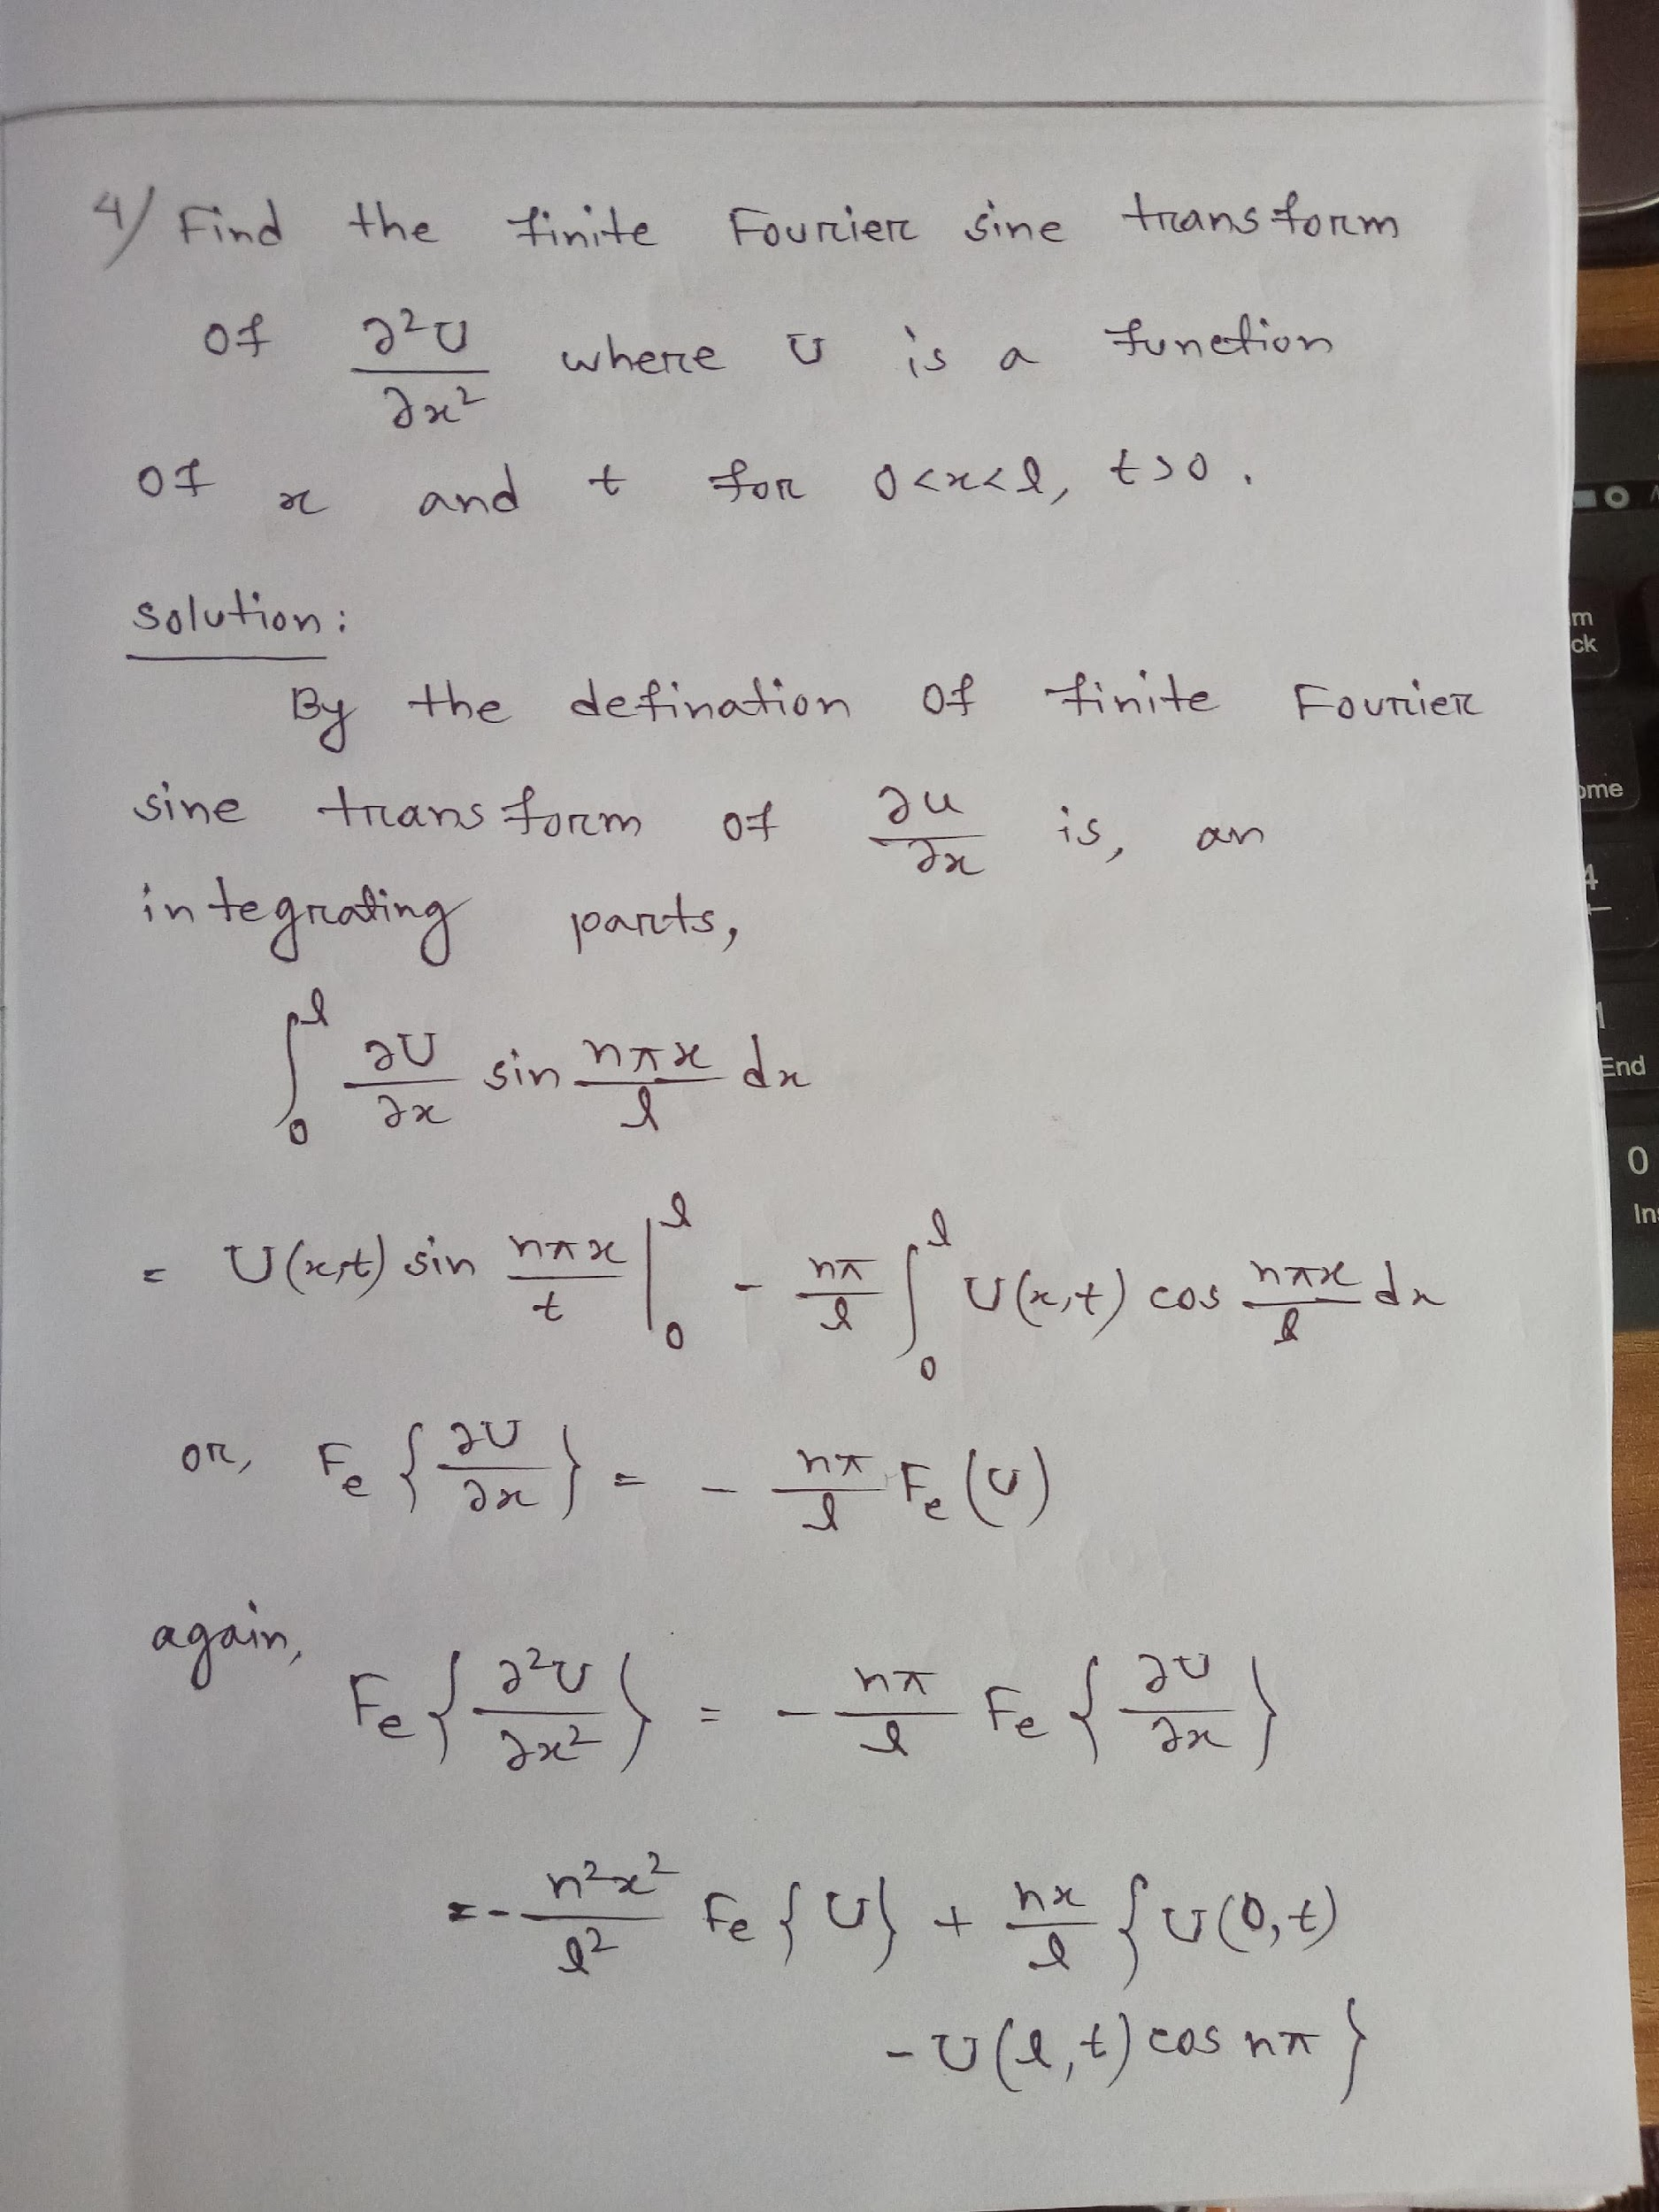 4) Find the finite Fourier sine transform
of ∂²U/∂x² where U is a function
of x and t for 0<x<l, t>0.
Solution:
By the defination of finite Fourier
sine transform of ∂u/∂x is, an
integrating parts,
∫₀ˡ ∂U/∂x sin nπx/l dx
= U(x,t) sin nπx/t |₀ˡ - nπ/l ∫₀ˡ U(x,t) cos nπx/l dx
or, Fe {∂U/∂x} = - nπ/l Fe (U)
again,
Fe {∂²U/∂x²} = - nπ/l Fe {∂U/∂x}
= - n²x²/l² Fe {U} + nx/l {U(0,t)
- U(l,t) cos nπ}
m
ck
ome
4
←
1
End
0
Ins